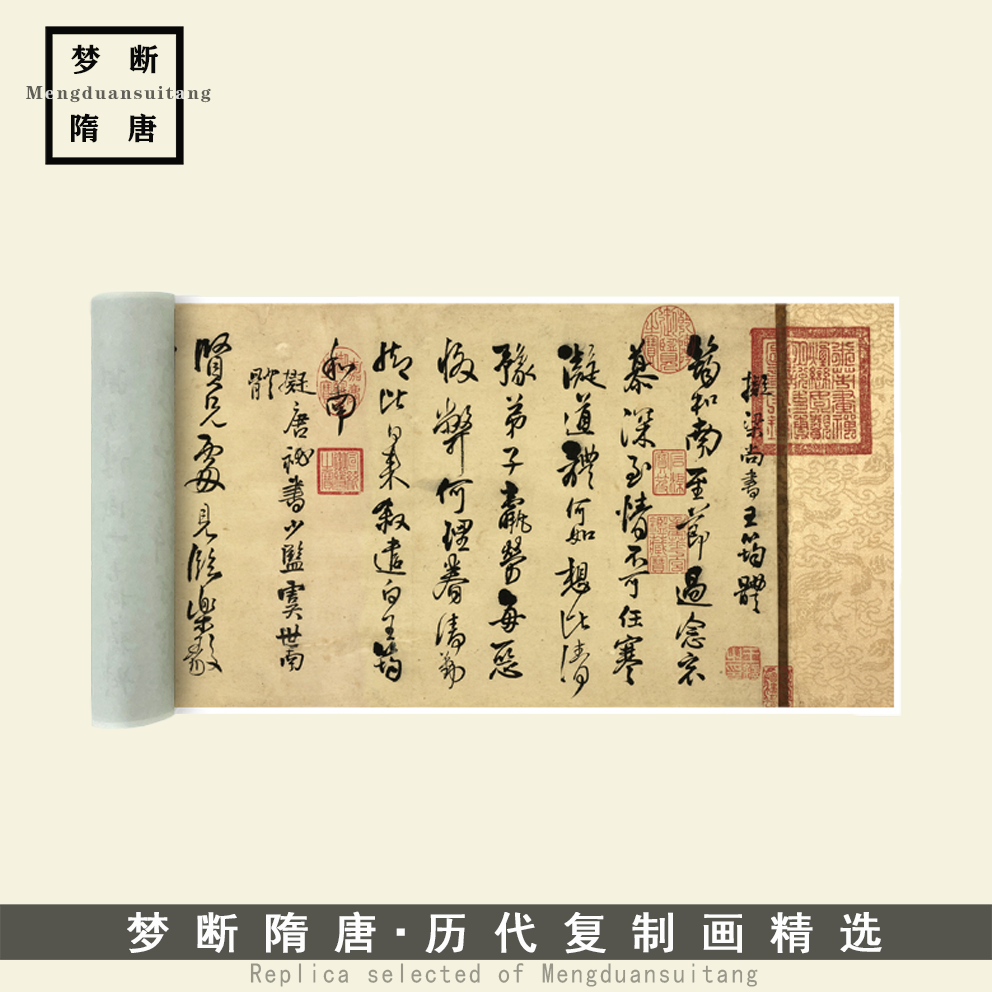 梦断
Mengduansuitang
隋唐
擬梁尚書王筠體
筠和南至節過念哀
慕深至情不可任寒
凝道體何如想比清
豫弟子羸勞每惡
弊何理眷清勤
比日來敘遣白王筠
和南
擬唐祕書少監虞世南
體
賢兄處見臨樂毅
梦断隋唐·历代复制画精选
Replica selected of Mengduansuitang